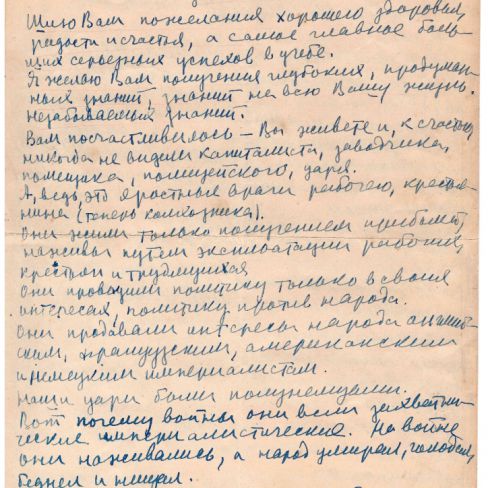 Шлю Вам пожелания хорошего здоровья,
радости и счастья, а самое главное боль-
ших серьезных успехов в учебе.
Я желаю Вам получения глубоких, продуман-
ных знаний, знаний на всю Вашу жизнь.
незабываемых знаний.
Вам посчастливилось – Вы живете и, к счастью,
никогда не видели капиталиста, заводчика,
помещика, полицейского, царя.
А, ведь, это яростные враги рабочего, крестья-
нина (теперь колхозника).
Они жили только получением прибылей,
наживы путем эксплоатации рабочих,
крестьян и трудящихся
Они проводили политику только в своих
интересах, политику против народа.
Они продавали интересы народа англий-
ским, французским, американским
и немецким империалистам.
Наши цари были полунемцами.
Вот почему войны они вели захватни-
ческие империалистические. На войне
они наживались, а народ умирал, голодал,
беднел и нищал.